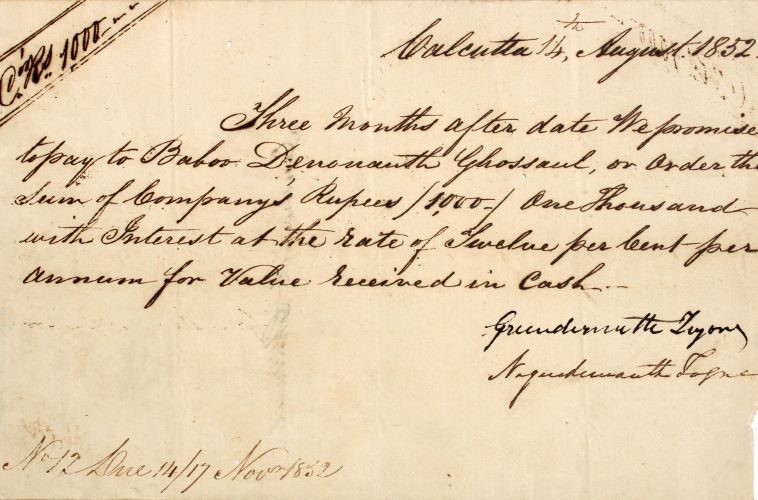 Co.'s Rs. 1000 - - -
Calcutta 14th, August. 1852.
Three Months after date We promise
to pay to Baboo Denonauth Ghossaul, or Order the
Sum of Company's Rupees /1000-/ One Thousand
with Interest at the rate of Twelve per Cent per
annum for Value received in Cash. -
Greendernauth
Nogendernauth
No 12 Due 14/17 Novr 1852